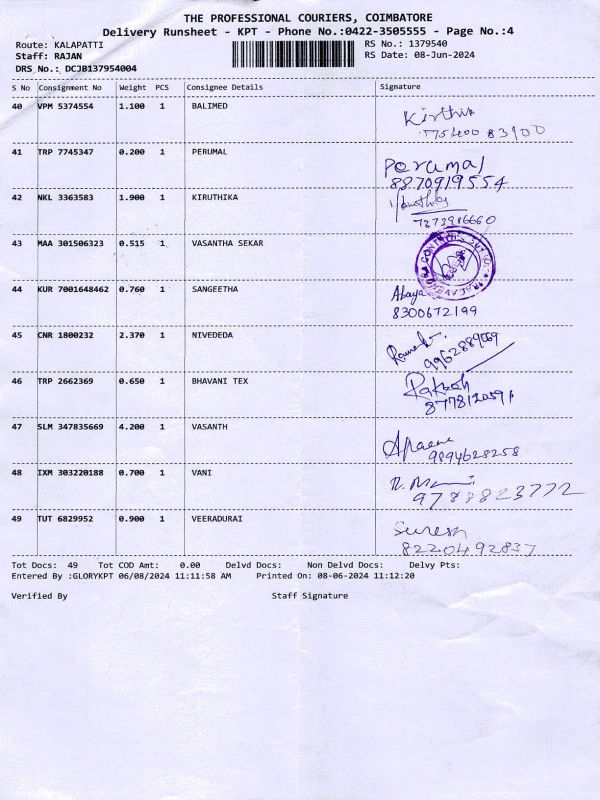 THE PROFESSIONAL COURIERS, COIMBATORE
Delivery Runsheet - KPT - Phone No.:0422-3505555 - Page No.:4
Route: KALAPATTI RS No.: 1379540
Staff: RAJAN RS Date: 08-Jun-2024
DRS No.: DCJB137954004
S No Consignment No Weight PCS Consignee Details Signature
40 VPM 5374554 1.100 1 BALIMED
41 TRP 7745347 0.200 1 PERUMAL Perumal
8870919554
42 NKL 3363583 1.900 1 KIRUTHIKA
7273986660
43 MAA 301506323 0.515 1 VASANTHA SEKAR
44 KUR 7001648462 0.760 1 SANGEETHA
8300672199
45 CNR 1800232 2.370 1 NIVEDEDA
9962889069
46 TRP 2662369 0.650 1 BHAVANI TEX
47 SLM 347835669 4.200 1 VASANTH
9894628258
48 IXM 303220188 0.700 1 VANI
9788823772
49 TUT 6829952 0.900 1 VEERADURAI Suresh
8220492837
Tot Docs: 49 Tot COD Amt: 0.00 Delvd Docs: Non Delvd Docs: Delvy Pts:
Entered By :GLORYKPT 06/08/2024 11:11:58 AM Printed On: 08-06-2024 11:12:20
Verified By Staff Signature